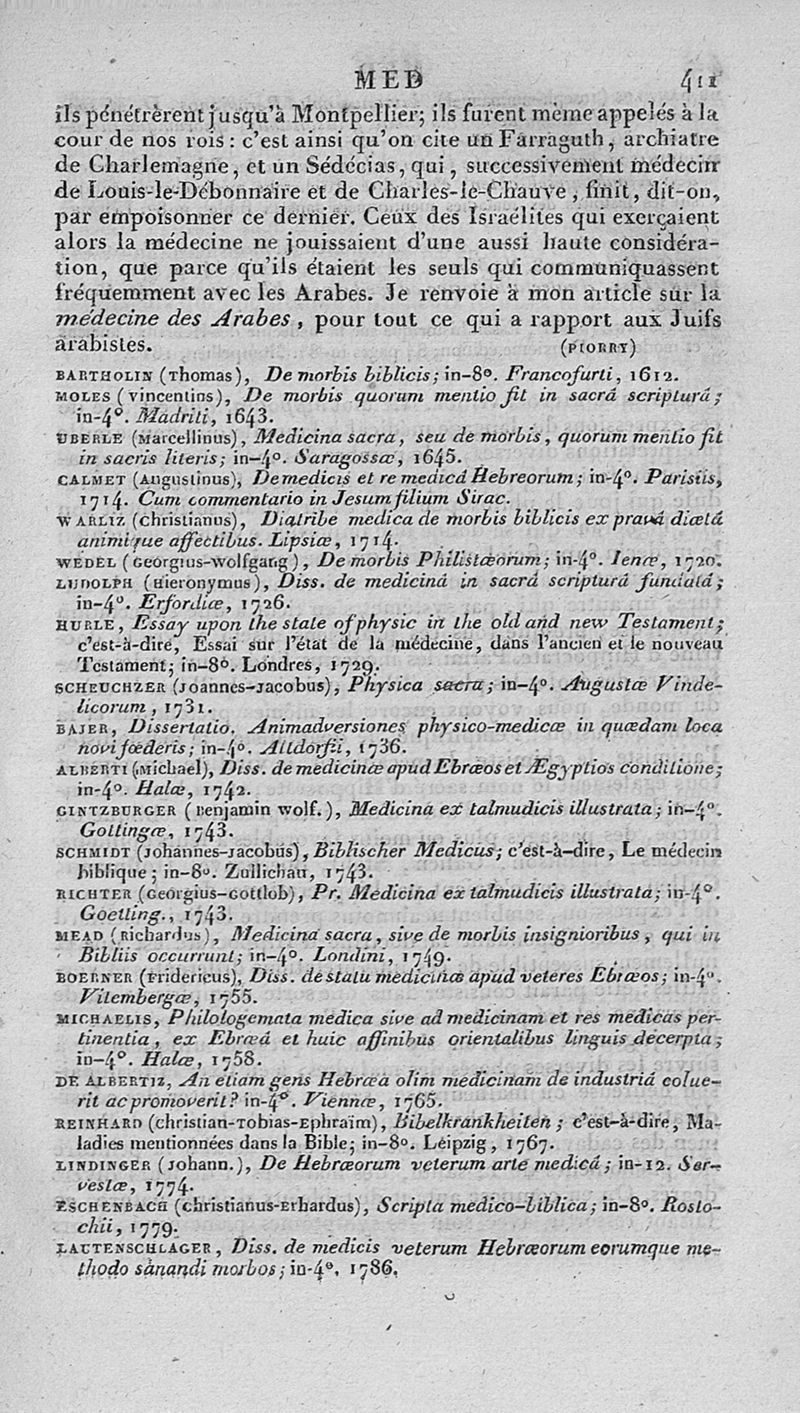 MED 411
ils pénétrèrent jusqu'à Montpellier; ils furent même appelés à la
cour de nos rois : c'est ainsi qu'on cite un Farraguth, archiatre
de Charlemagne, et un Sédécias, qui, successivement médecin
de Louis-le-Débonnaire et de Charles-le-Chauve, finit, dit-on,
par empoisonner ce dernier. Ceux des Israélites qui exerçaient
alors la médecine ne jouissaient d'une aussi haute considéra-
tion, que parce qu'ils étaient les seuls qui communiquassent
fréquemment avec les Arabes. Je renvoie à mon article sur la
médecine des Arabes, pour tout ce qui a rapport aux Juifs
arabistes. (PIORRY)
BARTHOLIN (Thomas), De morbis biblicis; in-8°. Francofurti, 1612.
MOLES (Vincentins), De morbis quorum mentio fit in sacrâ scripturâ;
in-4°. Madriti, 1643.
UBERLE (Marcellinus), Medicina sacra, seu de morbis, quorum mentio fit
in sacris literis; in-4°. Saragossæ, 1645.
CALMET (Augustinus), De medicis et re medicâ Hebreorum; in-4°. Parisiis,
1714. Cum commentario in Jesum filium Sirac.
WARLIZ (Christianus), Diatribe medica de morbis biblicis ex pravâ diætâ
animique affectibus. Lipsiæ, 1714.
WEDEL (Georgius-Wolfgang), De morbis Philistæorum; in-4°. Ienæ, 1720.
LUDOLPH (Hieronymus), Diss. de medicinâ in sacrâ scripturâ fundatâ;
in-4°. Erfordiæ, 1726.
HURLE, Essay upon the state of physic in the old and new Testament;
c'est-à-dire, Essai sur l'état de la médecine, dans l'ancien et le nouveau
Testament; in-8°. Londres, 1729.
SCHEUCHZER (Joannes-Jacobus), Physica sacra; in-4°. Augustæ Vinde-
licorum, 1731.
BAJER, Dissertatio. Animadversiones physico-medicæ in quædam loca
novi fœderis; in-4°. Altdorfii, 1736.
ALBERTI (Michael), Diss. de medicinæ apud Ebræos et Ægyptios conditione;
in-4°. Halæ, 1742.
GINTZBURGER (Benjamin Wolf.), Medicina ex talmudicis illustrata; in-4°.
Gottingæ, 1743.
SCHMIDT (Johannes-Jacobus), Biblischer Medicus; c'est-à-dire, Le médecin
biblique; in-8°. Zullichau, 1743.
RICHTER (Georgius-Gottlob), Pr. Medicina ex talmudicis illustrata; in-4°.
Goetting., 1743.
MEAD (Richardus), Medicina sacra, sive de morbis insignioribus, qui in
Bibliis occurrunt; in-4°. Londini, 1749.
BOERNER (Fridericus), Diss. de statu medicinæ apud veteres Ebræos; in-4°.
Vitembergæ, 1755.
MICHAELIS, Philologemata medica sive ad medicinam et res medicas per-
tinentia, ex Ebræâ et huic affinibus orientalibus linguis decerpta;
in-4°. Halæ, 1758.
DE ALBERTIZ, An etiam gens Hebræa olim medicinam de industriâ colue-
rit ac promoverit? in-4°. Viennæ, 1765.
REINHARD (Christian-Tobias-Ephraïm), Bibelkrankheiten; c'est-à-dire, Ma-
ladies mentionnées dans la Bible; in-8°. Léipzig, 1767.
LINDINGER (Johann.), De Hebræorum veterum arte medicâ; in-12. Ser-
vestæ, 1774.
ESCHENBACH (Christianus-Erhardus), Scripta medico-biblica; in-8°. Rosto-
chii, 1779.
LAUTENSCHLAGER, Diss. de medicis veterum Hebræorum eorumque me-
thodo sanandi morbos; in-4°, 1786.